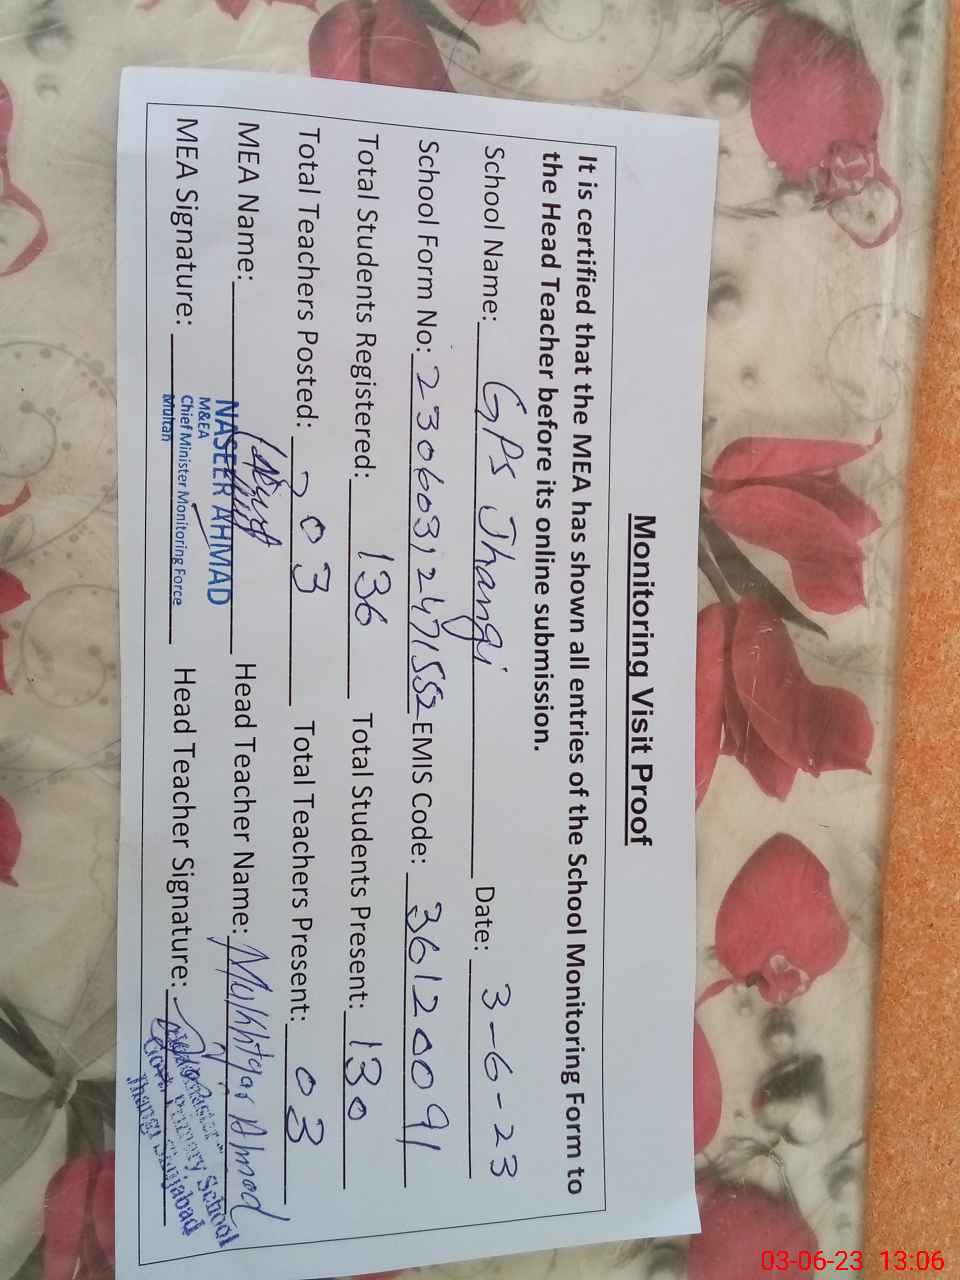 Monitoring Visit Proof
It is certified that the MEA has shown all entries of the School Monitoring Form to
the Head Teacher before its online submission.
School Name: GPS Jhangi Date: 3-6-23
School Form No: 230603,2471552 EMIS Code: 36120091
Total Students Registered: 136 Total Students Present: 130
Total Teachers Posted: 03 Total Teachers Present: 03
MEA Name: NASEER AHMAD Head Teacher Name: Mukhtyar Ahmad
M&EA
Chief Minister Monitoring Force
Multan
MEA Signature: Head Teacher Signature:
Headmaster
Govt. Primary School
Jhangi Shujabad
03-06-23 13:06